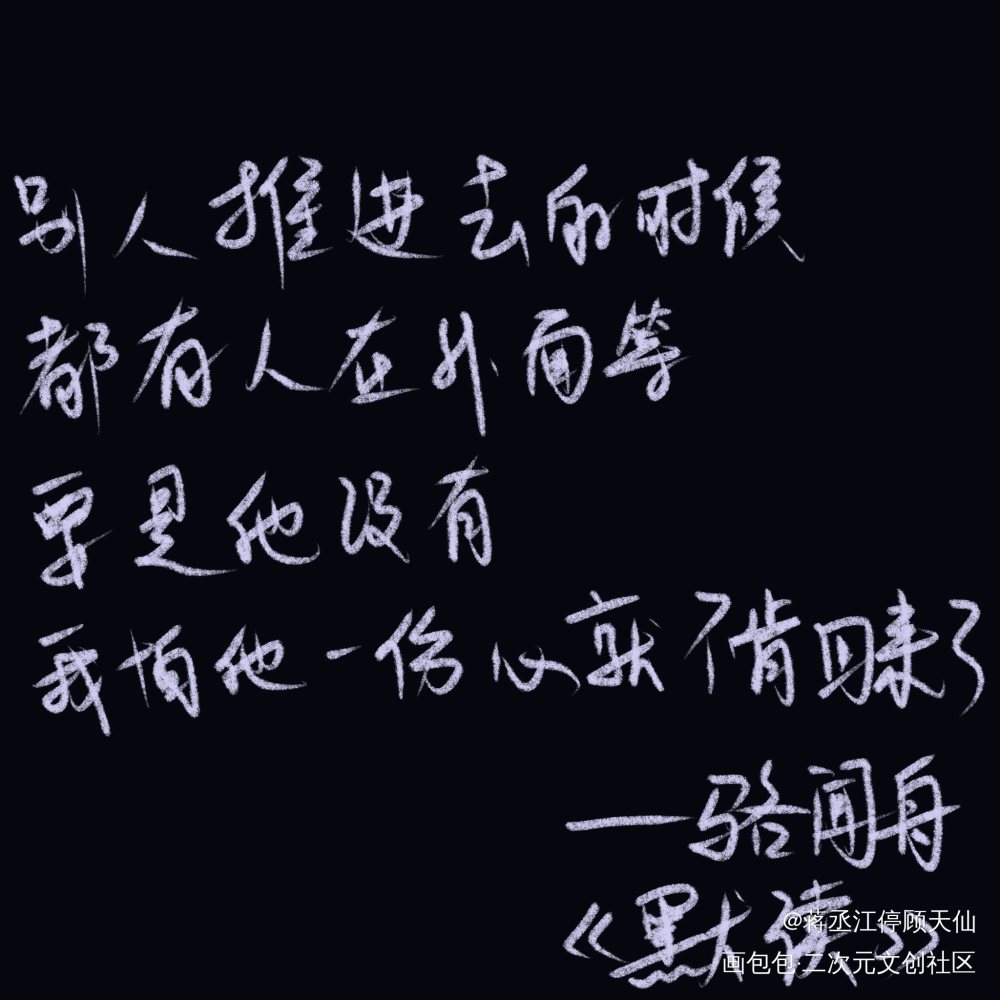 别人推进去的时候
都有人在外面等
要是他没有
我怕他一伤心就不肯睁眼了
——骆闻舟
《默读》
@蒋丞江停顾天仙
画包包·二次元文创社区